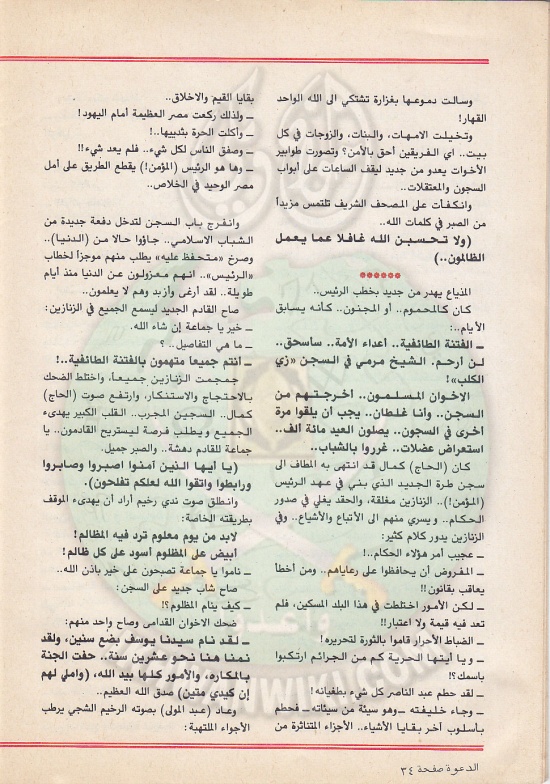 وسالت دموعها بغزارة تشتكي الى الله الواحد
القهار!
وتخيلت الامهات، والبنات، والزوجات في كل
بيت.. اي الفريقين أحق بالأمن؟ وتصورت طوابير
الأخوات يعدو من جديد ليقف الساعات على أبواب
السجون والمعتقلات..
وانكفأت على المصحف الشريف تلتمس مزيداً
من الصبر في كلمات الله..
(ولا تحسبن الله غافلا عما يعمل
الظالمون..)
******
المذياع يهدر من جديد بخطب الرئيس..
كان كالمحموم.. أو المجنون.. كأنه يسابق
الأيام..:
ــ الفتنة الطائفية.. أعداء الأمة.. ساسحق..
لن أرحم. الشيخ مرمي في السجن «زي
الكلب»!
الاخوان المسلمون.. أخرجتهم من
السجن.. وأنا غلطان.. يجب أن يلقوا مرة
أخرى في السجون.. يصلون العيد مائة ألف..
استعراض عضلات.. غرروا بالشباب..
كان (الحاج) كمال قد انتهى به المطاف الى
سجن طرة الجديد الذي بني في عهد الرئيس
(المؤمن!).. الزنازين مغلقة، والحقد يغلي في صدور
الحكام.. ويسري منهم الى الأتباع والأشياع.. وفي
الزنازين يدور كلام كثير:
ــ عجيب أمر هؤلاء الحكام..!
ــ المفروض أن يحافظوا على رعاياهم.. ومن أخطأ
يعاقب بقانون!!
ــ لكن الأمور اختلطت في هذا البلد المسكين، فلم
تعد فيه قيمة ولا اعتبار!!
ــ الضباط الأحرار قاموا بالثورة لتحريره!
ــ ويا أيتها الحرية كم من الجرائم ارتكبوا
باسمك؟!
ــ لقد حطم عبد الناصر كل شيء بطغيانه!
ــ وجاء خليفته ــ وهو سيئة من سيئاته ــ فحطم
بأسلوب آخر بقايا الأشياء.. الأجزاء المتناثرة من
بقايا القيم والاخلاق..
ــ ولذلك ركعت مصر العظيمة أمام اليهود!
ــ وأكلت الحرة بثدييها..!
ــ وصفق الناس لكل شيء.. فلم يعد شيء!!
ــ وها هو الرئيس (المؤمن!) يقطع الطريق على أمل
مصر الوحيد في الخلاص..
وانفرج باب السجن لتدخل دفعة جديدة من
الشباب الاسلامي.. جاؤوا حالا من (الدنيا)..
وصرخ «متحفظ عليه» يطلب منهم موجزاً لخطاب
«الرئيس».. انهم معزولون عن الدنيا منذ أيام
طويلة.. لقد أرغى وأزبد وهم لا يعلمون..
صاح القادم الجديد ليسمع الجميع في الزنازين:
ــ خير يا جماعة إن شاء الله.
ــ ما هي التفاصيل..؟
ــ أنتم جميعا متهمون بالفتنة الطائفية..!
جمجمت الزنازين جميعاً، واختلط الضحك
بالاحتجاج والاستنكار، وارتفع صوت (الحاج)
كمال.. السجين المجرب.. القلب الكبير يهدىء
الجميع ويطلب فرصة ليستريح القادمون.. يا
جماعة للقادم دهشة.. والصبر جميل.
(يا أيها الذين آمنوا اصبروا وصابروا
ورابطوا واتقوا الله لعلكم تفلحون).
وانطلق صوت ندي رخيم أراد أن يهدىء الموقف
بطريقته الخاصة:
لابد من يوم معلوم ترد فيه المظالم!
أبيض على المظلوم أسود على كل ظالم!
ــ ناموا يا جماعة تصبحون على خير باذن الله..
صاح شاب جديد على السجن:
ــ كيف ينام المظلوم؟!
ضحك الاخوان القدامى وصاح واحد منهم:
ــ لقد نام سيدنا يوسف بضع سنين، ولقد
نمنا هنا نحو عشرين سنة.. حفت الجنة
بالمكاره، والأمور كلها بيد الله، (واملي لهم
إن كيدي متين) صدق الله العظيم..
وعاد (عبد المولى) بصوته الرخيم الشجي يرطب
الأجواء الملتهبة:
الدعوة صفحة ٣٤